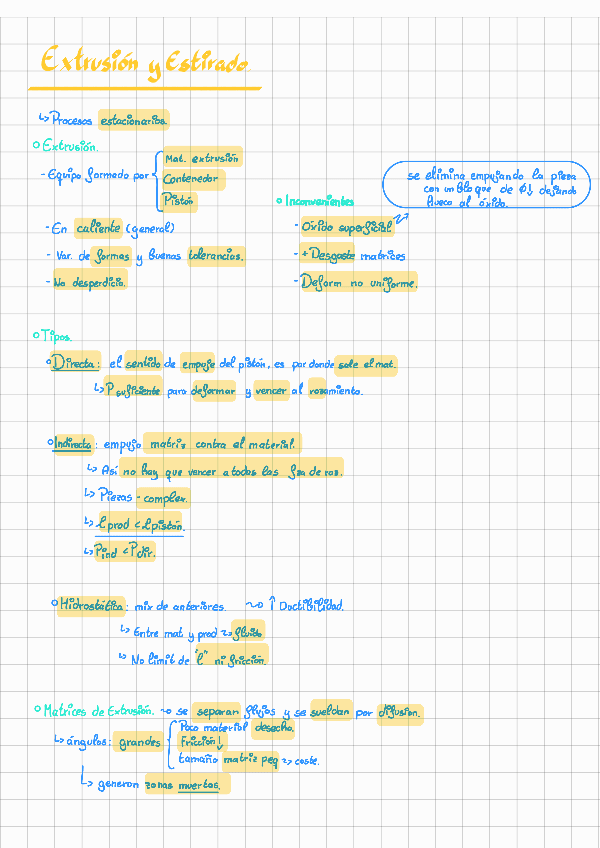 Extrusión y Estirado.
↳ Procesos estacionarios.
○ Extrusión.
- Equipo formado por { Mat. extrusión
Contenedor
Pistón
- En caliente (general)
- Var. de formas y buenas tolerancias.
- No desperdicio.
○ Inconvenientes
- Óxido superficial
- + Desgaste matrices
- Deform no uniforme.
se elimina empujando la pieza
con un bloque de Φ↓ dejando
hueco al óxido.
○ Tipos.
○ Directa: el sentido de empuje del pistón, es por donde sale el mat.
↳ P suficiente para deformar y vencer al rozamiento.
○ Indirecta: empujo matriz contra el material.
↳ Así no hay que vencer a todas las fza de roz.
↳ Piezas - complex.
↳ l prod < l pistón.
↳ Pind < Pdir.
○ Hidrostática: mix de anteriores. ~> ↑ Ductibilidad.
↳ Entre mat y prod ~> fluido
↳ No limit de "l" ni fricción.
○ Matrices de Extrusión. ~> se separan flujos y se sueldan por difusion.
↳ ángulos: grandes { Poco material desecho.
Fricción↓
tamaño matriz peq ~> coste.
↳ generan zonas muertas.